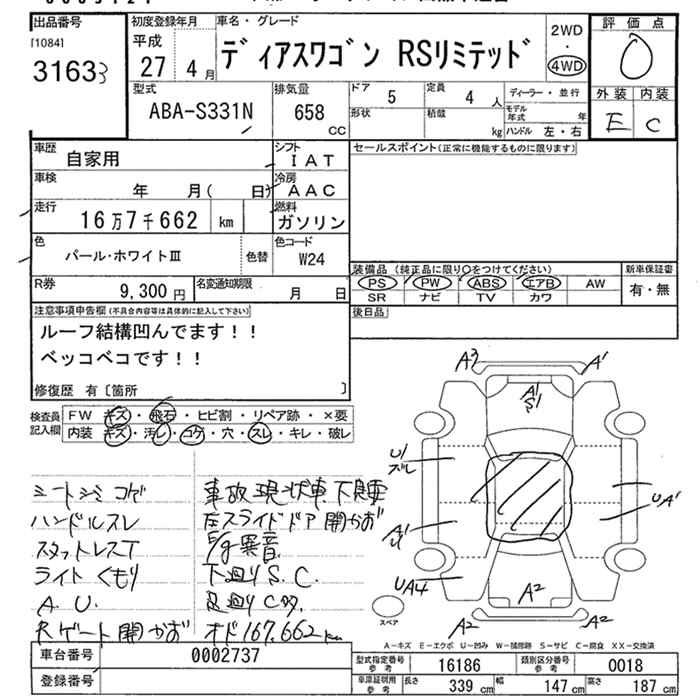 出品番号
[1084]
3163
初度登録年月
平成
27 年 4 月
車名・グレード
ディアスワゴン RSリミテッド
2WD
・
4WD
評価点
0
外装 内装
E C
型式
ABA-S331N
排気量
658
CC
ドア
5
定員
4 人
形状
積載
kg
ディーラー・並行
モデル年式 年
ハンドル 左・右
車歴
自家用
シフト
IAT
車検
年 月( 日)
冷房
AAC
走行
16万7千662 km
燃料
ガソリン
色
パール・ホワイトⅢ
色替
色コード
W24
R券
9,300 円
名変通知期限
月 日
セールスポイント(正常に機能するものに限ります)
装備品 (純正品に限り○をつけてください)
PS PW ABS エアB AW
SR ナビ TV カワ
新車保証書
有・無
後日品
注意事項申告欄(不具合内容等は具体的に記入して下さい)
ルーフ結構凹んでます!!
ベッコベコです!!
修復歴 有〔箇所 〕
検査員記入欄
FW キズ・飛石・ヒビ割・リペア跡・×要
内装 キズ・汚レ・コゲ・穴・スレ・キレ・破レ
シートシミ コゲ
ハンドルスレ
スタットレスT
ライトくもり
A.U.
Rゲート開かず
事故現状車
左スライドドア開かず
E/g異音
下廻りS.C.
足廻りC
オド167,662km
A3
A1
A1
S1
U1
スレ
UA1
A1
U1
UA4
A2
A2
A2
スペア
A−キズ E−エクボ U−凹み W−補修跡 S−サビ C−腐食 XX−交換済
車台番号
0002737
登録番号
型式指定番号
参考
16186
類別区分番号
参考
0018
車庫証明用
参考
長さ 339 cm 幅 147 cm 高さ 187 cm